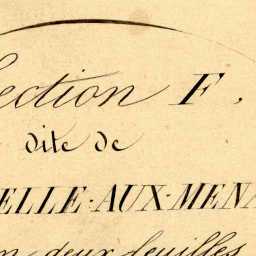 ection F.
dite de
ELLE-AUX-MENA
en deux feuilles